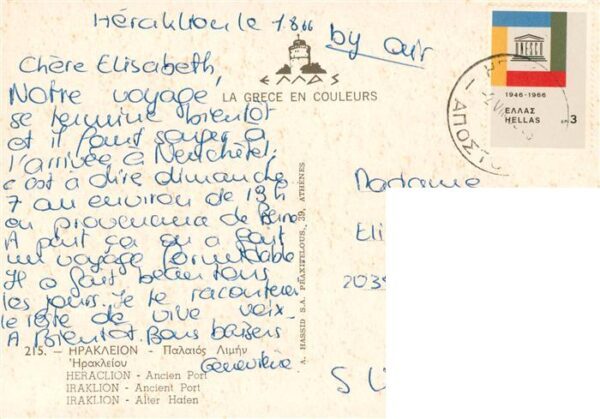 Héraklion le 1.8.66
by air
Chère Elisabeth,
Notre voyage,
se termine bientôt
et il faut songer à
l'arrivée à Neuchâtel,
c'est à dire dimanche
7 août environ de 19h
en provenance de Berne
A part ça on a fait
un voyage formidable
Il a fait beau tous
les jours. Je te raconterai
le reste de vive voix.
A Bientôt. Bons baisers
Geneviève
ΕΛΛΑΣ
LA GRECE EN COULEURS
215. — ΗΡΑΚΛΕΙΟΝ - Παλαιός Λιμήν
Ἡρακλείου
HERACLION - Ancien Port
IRAKLION - Ancient Port
IRAKLION - Alter Hafen
A. HASSID S.A. PRAXITELOUS, 39, ATHÈNES
1946-1966
ΕΛΛΑΣ
HELLAS
ΔΡ. 3
Madame
Eli
2035
S